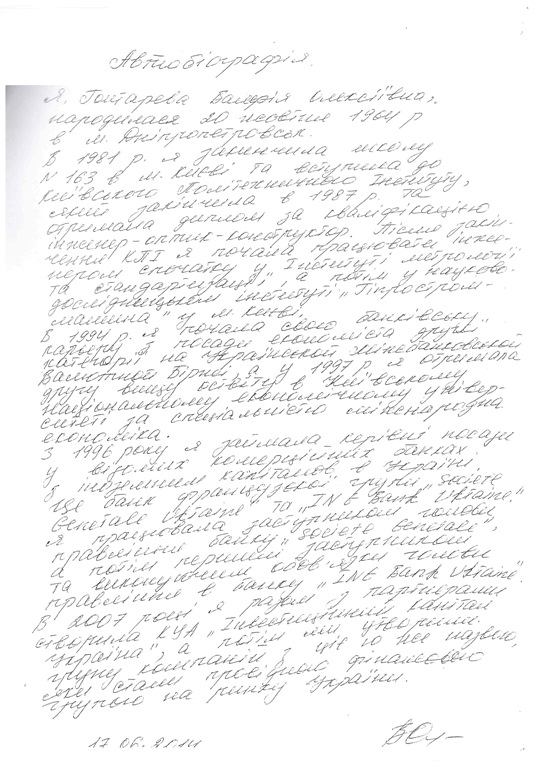 Автобіографія.
Я, Гонтарева Валерія Олексіївна,
народилася 20 жовтня 1964 р
в м. Дніпропетровськ.
В 1981 р. я закінчила школу
N 163 в м. Києві та вступила до
Київського Політехнічного Інституту,
який закінчила в 1987 р. та
отримала диплом за кваліфікацією
інженер-оптик-конструктор. Після закін-
чення КПІ я почала працювати інже-
нером спочатку у „Інституті метрології
та стандартизації", а потім у науково-
дослідницьком інституті „Гіпростром-
машина" у м. Києві.
В 1994 р. я почала свою банківську
кар'єру з посади економіста другої
категорії на Українській Міжбанківській
Валютной Біржі, а у 1997 р я отримала
другу вищу освіту в Київському
національному економічному універ-
ситеті за спеціальністю міжнародна
економіка.
З 1996 року я займала керівні посади
у відомих комерційних банках
з іноземним капіталом в Україні.
Це банк французської групи „Societe
Generale Ukraine" та „ING Bank Ukraine."
Я працювала заступником голови
правління банку „Societe Generale",
а потім першим заступником
та виконуючим обов'язки голови
правління в банку „ING Bank Ukraine".
В 2007 році я разом з партнерами
створила КУА „Інвестиційний капітал
Україна", а потім ми утворили
групу компаній з цією же назвою,
яки стали провідною фінансовою
групою на ринку України.
17 06. 2014